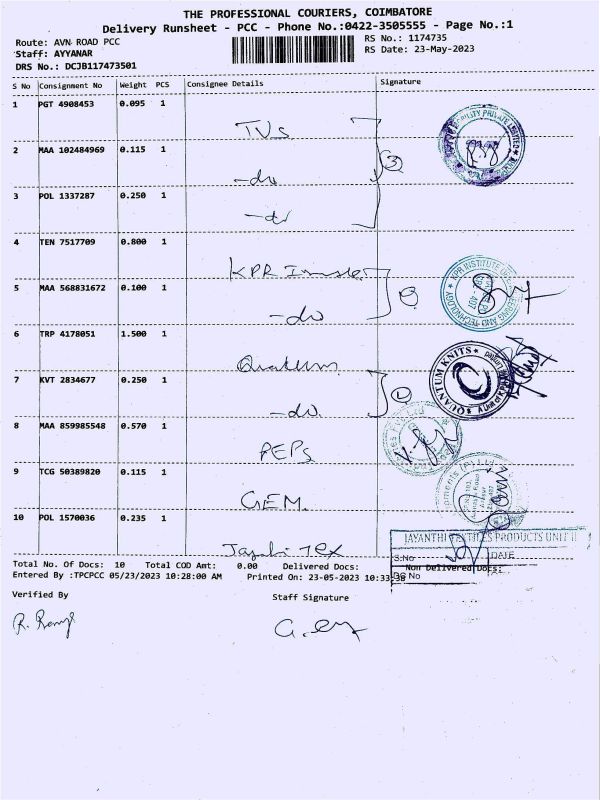 THE PROFESSIONAL COURIERS, COIMBATORE
Delivery Runsheet - PCC - Phone No.:0422-3505555 - Page No.:1
Route: AVN-ROAD PCC
RS No.: 1174735
Staff: AYYANAR
RS Date: 23-May-2023
DRS No.: DCJB117473501
S No Consignment No Weight PCS Consignee Details Signature
1 PGT 4908453 0.095 1
TVS
2 MAA 102484969 0.115 1
-do
3 POL 1337287 0.250 1
-do
4 TEN 7517709 0.800 1
KPR
5 MAA 568831672 0.100 1
-do
6 TRP 4178051 1.500 1
Quantum
7 KVT 2834677 0.250 1
-do
8 MAA 859985548 0.570 1
PEPS
9 TCG 50389820 0.115 1
GEM
10 POL 1570036 0.235 1
Tex
3
KPR INSTITUTE
AND TECHNOLOGY
QUANTUM KNITS
JAYANTHI TEXTILES PRODUCTS UNIT II
S.No DATE
DC No
Total No. Of Docs: 10 Total COD Amt: 0.00 Delivered Docs: Non Delivered Docs:
Entered By :TPCPCC 05/23/2023 10:28:00 AM Printed On: 23-05-2023 10:33:38
Verified By Staff Signature